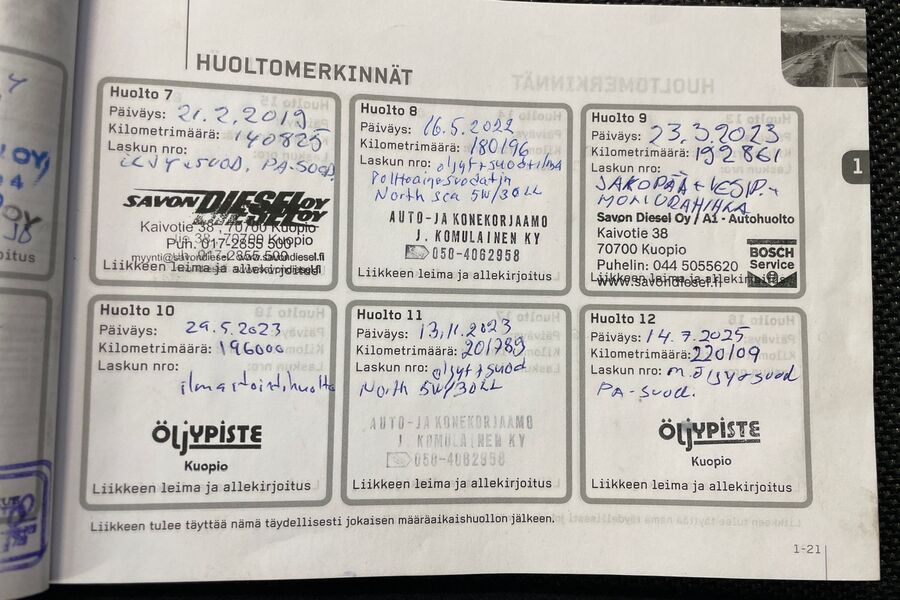 HUOLTOMERKINNÄT
Huolto 7
Päiväys: 21.2.2019
Kilometrimäärä: 140825
Laskun nro:
ÖLJY+SUOD. PA-SUOD.
SAVON DIESEL OY
Kaivotie 38, 70700 Kuopio
Puh. 017-2855 500
Liikkeen leima ja allekirjoitus
Huolto 8
Päiväys: 16.5.2022
Kilometrimäärä: 180196
Laskun nro: öljyt+suod+ilma
Polttoainesuodatin
North sca 5W/30LL
AUTO- JA KONEKORJAAMO
J. KOMULAINEN KY
050-4062958
Liikkeen leima ja allekirjoitus
Huolto 9
Päiväys: 23.3.2023
Kilometrimäärä: 192861
Laskun nro:
JAKOPÄÄ + VESIP. +
MONIURAHIHNA
Savon Diesel Oy / A1 - Autohuolto
Kaivotie 38
70700 Kuopio
Puhelin: 044 5055620
www.savondiesel.fi
BOSCH
Service
Liikkeen leima ja allekirjoitus
Huolto 10
Päiväys: 29.5.2023
Kilometrimäärä: 196000
Laskun nro:
ilmastointihuolto
ÖLJYPISTE
Kuopio
Liikkeen leima ja allekirjoitus
Huolto 11
Päiväys: 13.11.2023
Kilometrimäärä: 201789
Laskun nro: öljyt+suod
North 5W/30LL
AUTO- JA KONEKORJAAMO
J. KOMULAINEN KY
050-4062958
Liikkeen leima ja allekirjoitus
Huolto 12
Päiväys: 14.7.2025
Kilometrimäärä: 220109
Laskun nro: m.öljy+suod
PA-suod.
ÖLJYPISTE
Kuopio
Liikkeen leima ja allekirjoitus
Liikkeen tulee täyttää nämä täydellisesti jokaisen määräaikaishuollon jälkeen.
1-21
1